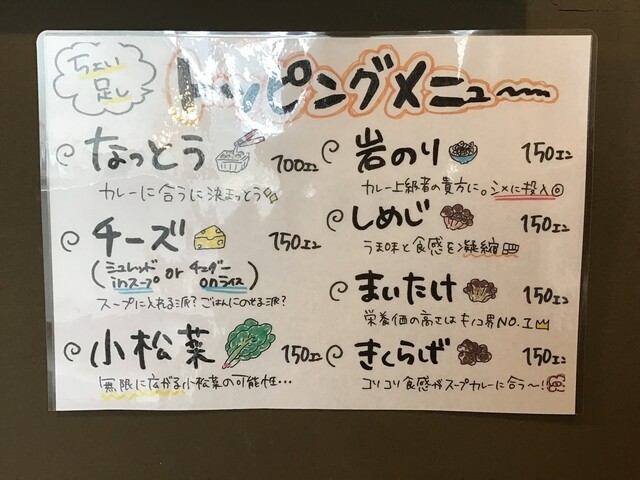 ちょい
足し
トッピングメニュー
なっとう 100エン
カレーに合うに決まっとう
チーズ 150エン
(シュレッド or チェダー
inスープ onライス)
スープに入れる派?ごはんにのせる派?
小松菜 150エン
無限に広がる小松菜の可能性…
岩のり 150エン
カレー上級者の貴方に。シメに投入◎
しめじ 150エン
うま味と食感を凝縮
まいたけ 150エン
栄養価の高さはキノコ界NO.1
きくらげ 150エン
コリコリ食感がスープカレーに合う〜!